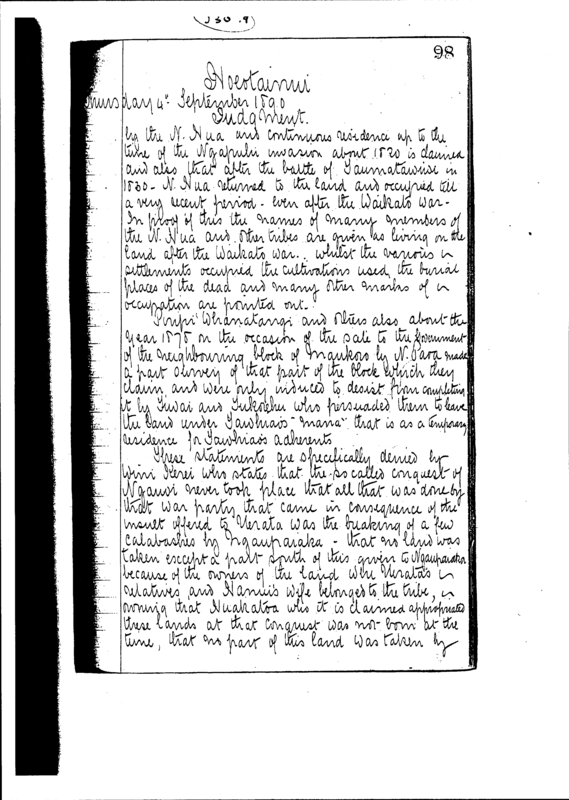 JSO .9
98
Hoeotainui
Thursday 4th September 1890
Judgment.
by the N. Hua and continuous residence up to the
time of the Ngapuhi invasion about 1820 is claimed
and also that after the battle of Taumatawiwi in
1830 - N. Hua returned to the land and occupied till
a very recent period - even after the Waikato War -
In proof of this the names of many members of
the N. Hua and other tribes are given as living on the
land after the Waikato war.. whilst the various
settlements occupied the cultivations used, the burial
places of the dead and many other marks of
occupation are pointed out.
Piripi Whanatangi and others also about the
year 1878 on the occasion of the sale to the Government
of the neighbouring block of Maukoro by N. Paoa made
a part survey of that part of the block which they
claim and were only induced to desist from completing
it by Tiwai and Tukorehu who persuaded them to leave
the land under Tawhiao's "mana" that is as a temporary
residence for Tawhiao's adherents
These statements are specifically denied by
Wini Kerei who states that the so called conquest of
Ngawi never took place that all that was done by
that war party that came in consequence of the
insult offered to Werata was the breaking of a few
calabashes by Ngauparaka - that no land was
taken except a part south of this given to Ngauparaka
because of the owners of the land were Werata's
relatives and Hanui's wife belonged to the tribe,
owning that Huakatoa who it is claimed appropriated
these lands at that conquest was not born at the
time, that no part of this land was taken by